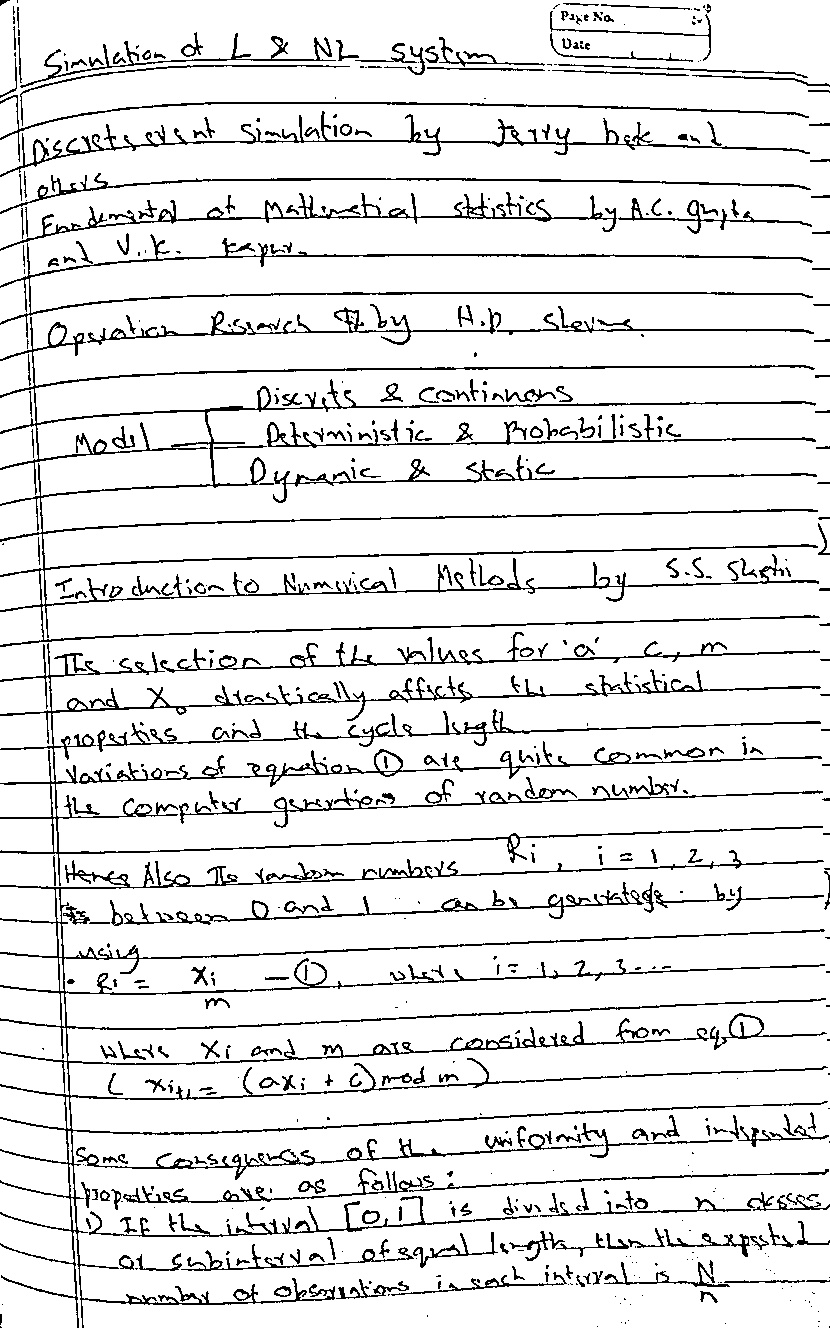 Page No.
Date
Simulation of L & NL system
Discrete event simulation by Jerry and
others
Fundemental of Mathematical statistics by A.C. Gupta
and V.K. Kapur.
Operation Research by H.D.
Discrets & continuous
Model Deterministic & Probabilistic
Dynamic & Static
Introduction to Numerical Methods by S.S.
The selection of the values for 'a', c, m
and X₀ drastically affects the statistical
properties and the cycle length.
Variations of equation ① are quite common in
the computer generations of random number.
Also The random numbers Ri, i = 1, 2, 3
between 0 and 1 can be by
using
Ri = Xi/m - ①, where i = 1, 2, 3...
where Xi and m are considered from eq. ①
( xi+1 = (axi + c) mod m )
Some consequences of the uniformity and
properties are as follows:
1) If the interval [0,1] is divided into n classes
or subinterval of equal length, then the expected
number of observations in each interval is N/n